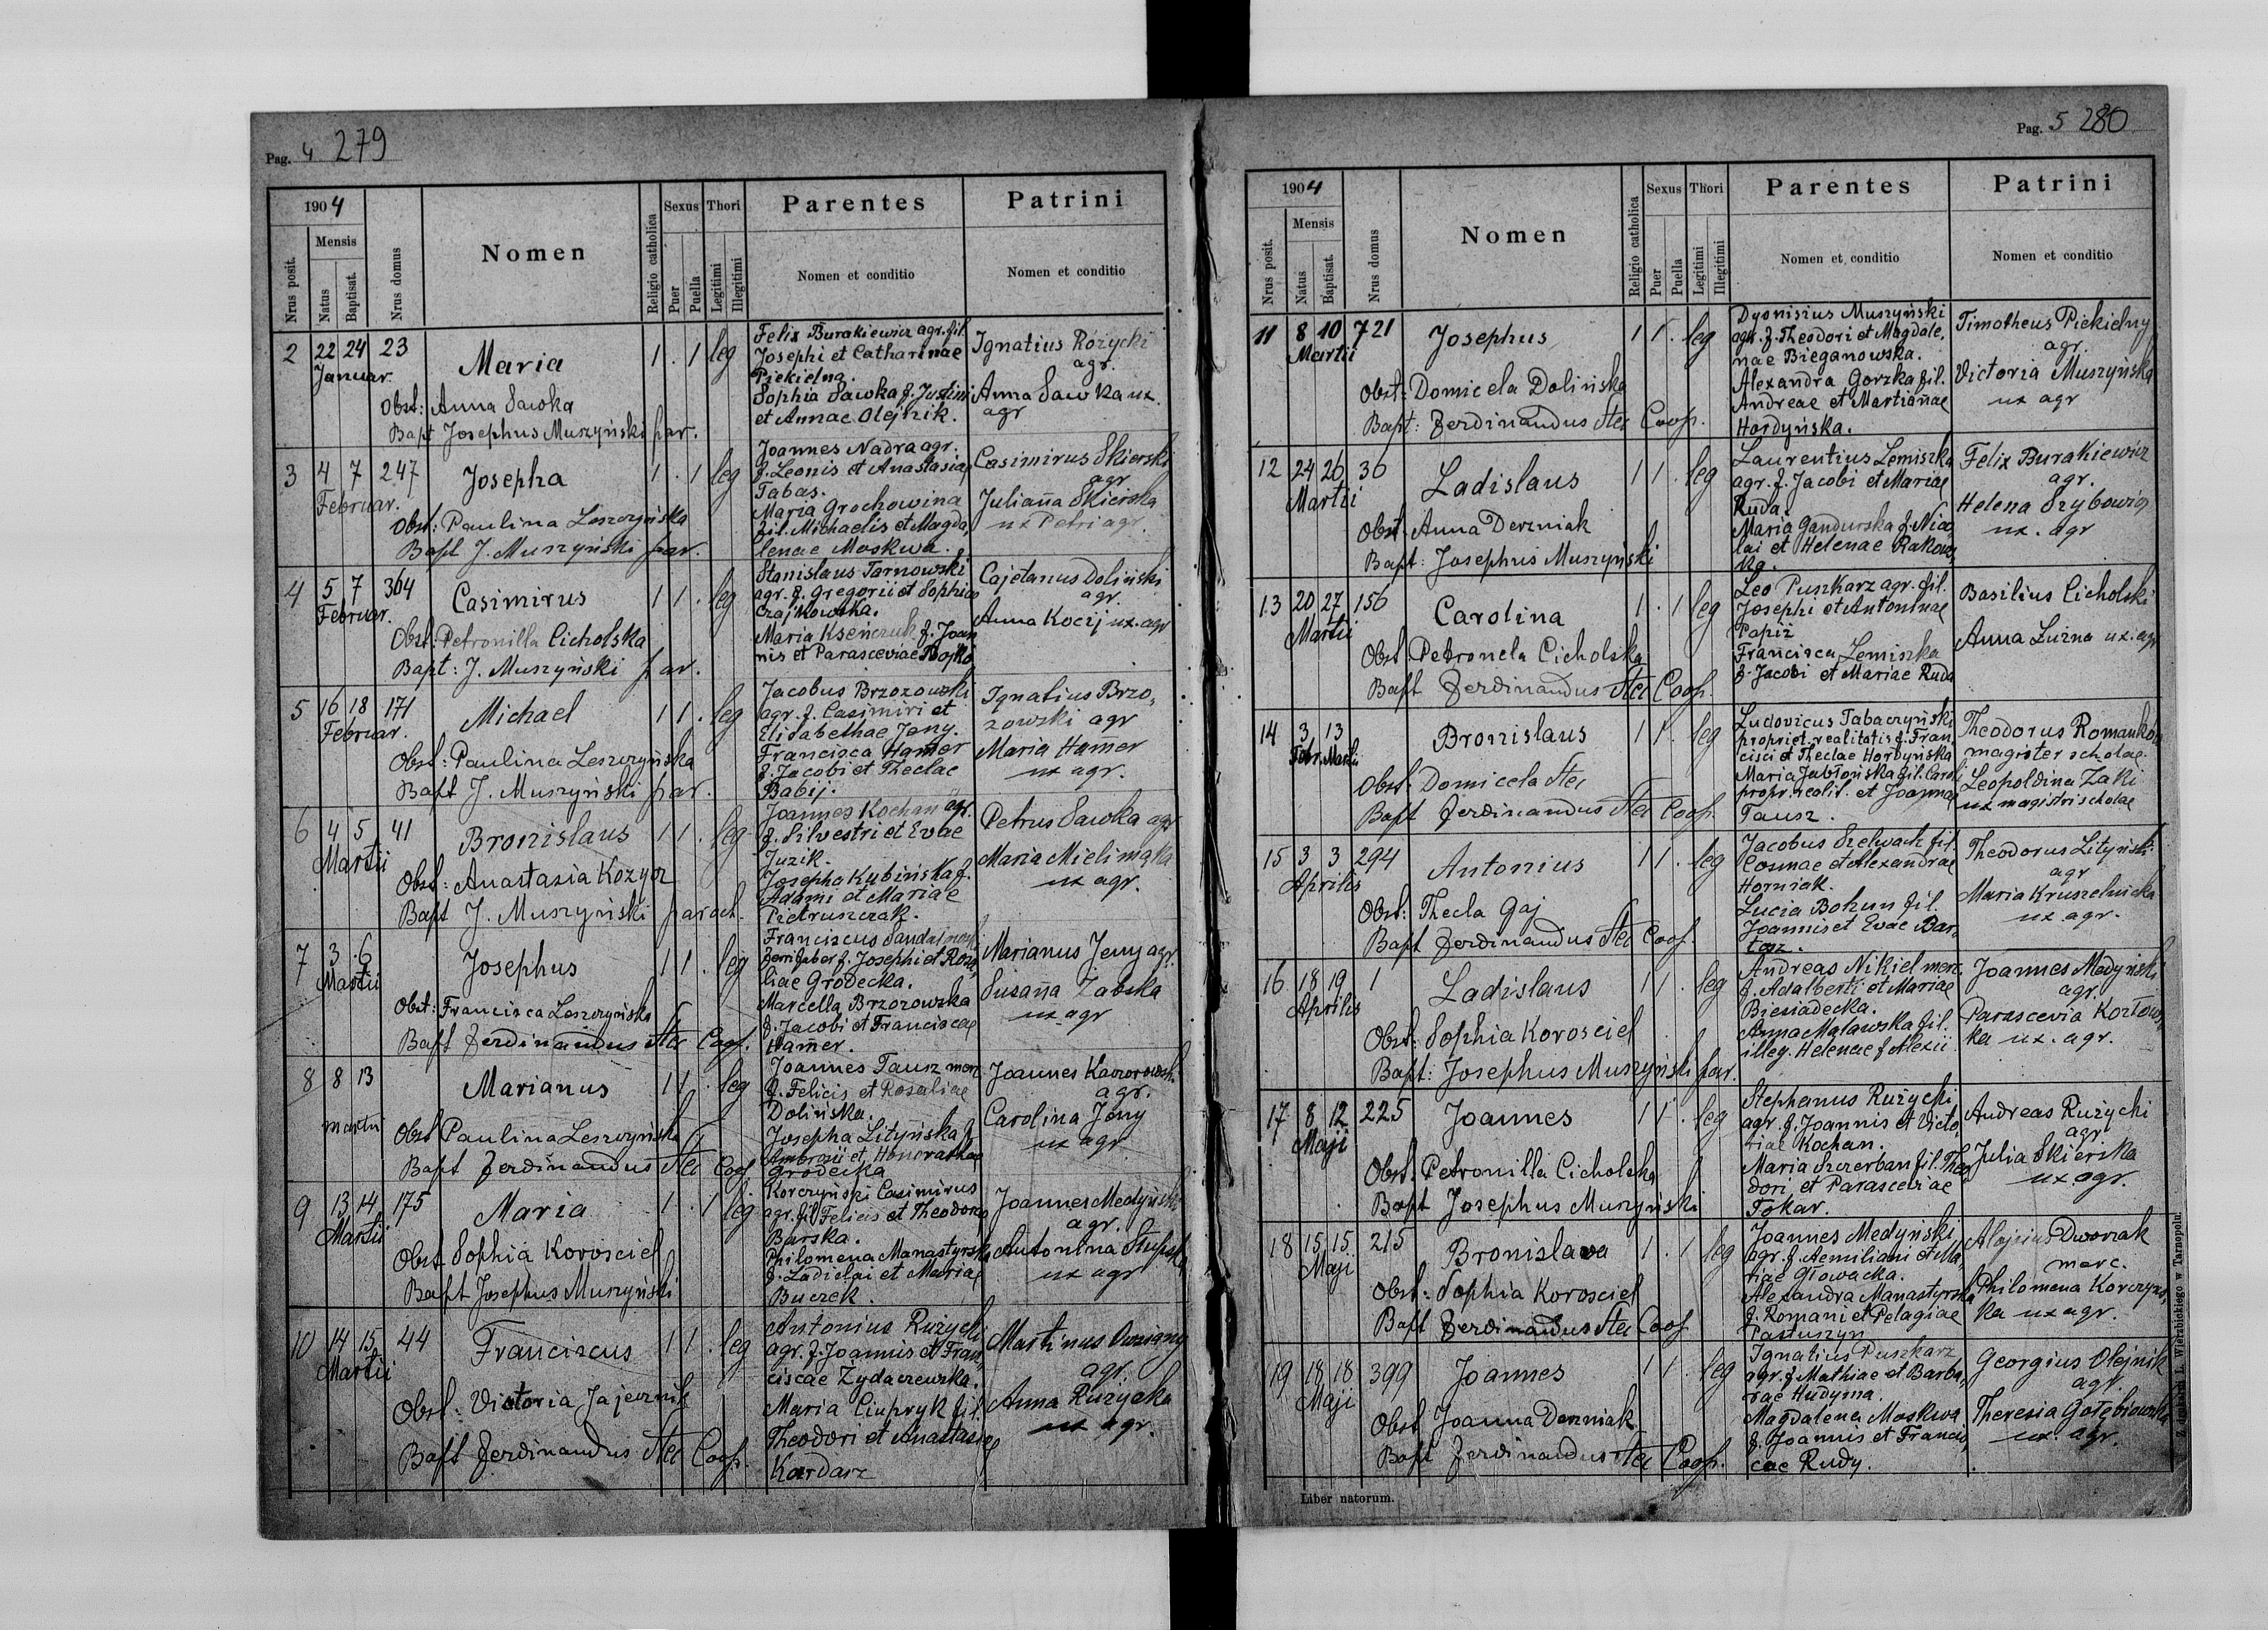 Pag. 4 279
1904
Nrus posit.
Mensis
Natus
Baptisat.
Nrus domus
Nomen
Religio catholica
Sexus
Puer
Puella
Thori
Legitimi
Illegitimi
Parentes
Nomen et conditio
Patrini
Nomen et conditio
2 22 24 23 Maria 1 . 1 leg
Januar.
Obst: Anna Sawka
Bapt Josephus Muszyński par.
Felix Burakiewicz agr. fil.
Josephi et Catharinae
Piekielna
Sophia Sawka f. Justini
et Annae Olejnik.
Ignatius Różycki
agr.
Anna Sawka ux.
agr
3 4 7 247 Josepha 1 . 1 leg
Februar.
Obst: Paulina Leszczyńska
Bapt J. Muszyński par.
Joannes Nadra agr.
f. Leonis et Anastasiae
Tabas.
Maria Grochowina
fil. Michaelis et Magda,
lenae Moskwa.
Casimirus Skierski
agr
Julianna Skierska
ux Petri agr.
4 5 7 364 Casimirus 1 1 . leg
Februar.
Obst: Petronilla Cicholska
Bapt: J. Muszyński par.
Stanislaus Tarnowski
agr. f. Gregorii et Sophiae
Czajkowska.
Maria Kseńczuk f. Joan
nis et Parasceviae Bojko
Cajetanus Doliński
agr.
Anna Kocij ux. agr
5 16 18 171 Michael 1 1 . leg
Februar.
Obst: Paulina Leszczyńska
Bapt J. Muszyński par.
Jacobus Brzozowski
agr. f. Casimiri et
Elisabethae Jeny.
Francisca Hamer
f. Jacobi et Theclae
Babij.
Ignatius Brzo,
zowski agr
Maria Hamer
ux agr.
6 4 5 41 Bronislaus 1 1 . leg
Martii
Obst: Anastasia Kozyra
Bapt J. Muszyński paroch.
Joannes Kochan agr.
f. Silvestri et Evae
Juzik.
Josepha Kubińska f.
Adami et Mariae
Pietruszczak.
Petrus Sawka agr
Maria Mielimąka
ux agr.
7 3 6 Josephus 1 1 . leg
Martii
Obst: Francisca Leszczyńska
Bapt Ferdinandus Coop.
Franciscus
ferrifaber f. Josephi et Rosa,
liae Grodecka.
Marcella Brzozowska
f. Jacobi et Franciscae
Hamer.
Marianus Jeny agr.
Susanna Żabska
ux agr
8 8 13 Marianus 1 1 . leg
martii
Obst Paulina Leszczyńska
Bapt Ferdinandus Coop.
Joannes Tausz merc
f. Felicis et Rosaliae
Dolińska.
Josepha Lityńska f.
Ambrosii et Honorathae
Grodecka
Joannes Kaczorowski
agr.
Carolina Jeny
ux agr.
9 13 14 175 Maria 1 . 1 leg
Martii
Obst Sophia Korosciel
Bapt Josephus Muszyński
Korczyński Casimirus
agr. fil Felicis et Theodora
Barska.
Philomena Manastyrska
f. Ladislai et Mariae
Buczek.
Joannes Medyński
agr.
Antonina Słupska
ux agr
10 14 15 44 Franciscus 1 1 . leg
Martii
Obst: Victoria Jajecznik
Bapt Ferdinandus Coop.
Antonius Rużycki
agr. f. Joannis et Fran,
ciscae Żydaczewska.
Maria Ciupryk fil.
Theodori et Anastasiae
Kardasz
Martinus
agr.
Anna Rużycka
ux agr.
Pag. 5 280
1904
Nrus posit.
Mensis
Natus
Baptisat.
Nrus domus
Nomen
Religio catholica
Sexus
Puer
Puella
Thori
Legitimi
Illegitimi
Parentes
Nomen et conditio
Patrini
Nomen et conditio
11 8 10 721 Josephus 1 1 . leg
Martii
Obst: Domicela Dolińska
Bapt: Ferdinandus Coop.
Dyonisius Muszyński
agr. f. Theodori et Magdale,
nae Bieganowska.
Alexandra Gorzka fil.
Andreae et Martiannae
Hordyńska.
Timotheus Piekielny
agr.
Victoria Muszyńska
ux agr
12 24 26 36 Ladislaus 1 1 . leg
Martii
Obst. Anna Derzniak
Bapt: Josephus Muszyński
Laurentius Lemiszka
agr. f. Jacobi et Mariae
Ruda.
Maria Gandurska f. Nico
lai et Helenae Rakows,
ka.
Felix Burakiewicz
agr.
Helena Szybowicz
ux. agr
13 20 27 156 Carolina 1 . 1 leg
Martii
Obst. Petronela Cicholska
Bapt Ferdinandus Coop.
Leo Puszkarz agr. fil.
Josephi et Antoninae
Papiż
Francisca Lemiszka
f. Jacobi et Mariae Ruda
Basilius Cicholski
Anna Luzna ux. agr
14 3 13 Bronislaus 1 1 . leg
Febr. Martii
Obst: Domicela
Bapt Ferdinandus Coop.
Ludovicus Tabaczyński
propriet. realitatis f. Fran
cisci et Theclae Hordyńska
Maria Jabłońska fil. Caroli
propr. realit. et Joannae
Tausz.
Theodorus Romanków
magister scholae.
Leopoldina Żaki
ux magistri scholae
15 3 3 294 Antonius 1 1 . leg
Aprilis
Obst: Thecla Gaj
Bapt Ferdinandus Coop.
Jacobus Szelwach fil.
Cosmae et Alexandrae
Horniak.
Lucia Bohun fil.
Joannis et Evae Bar,
tosz.
Theodorus Lityński
agr
Maria Kruszelnicka
ux agr.
16 18 19 1 Ladislaus 1 1 . leg
Aprilis
Obst: Sophia Korosciel
Bapt: Josephus Muszyński par.
Andreas Nikiel merc.
f. Adalberti et Mariae
Biesiadecka.
Anna Malawska fil.
illeg. Helenae f Alexii
Joannes Medyński
agr.
Parascevia Kozłows,
ka ux. agr.
17 8 12 225 Joannes 1 1 . leg
Maji
Obst. Petronilla Cicholska
Bapt Josephus Muszyński
Stephanus Rużycki
agr. f. Joannis et Victo,
riae Kochan.
Maria Szczerban fil. Theo
dori et Parasceviae
Tokar.
Andreas Rużycki
agr
Julia Skierska
ux agr.
18 15 15 215 Bronislava 1 . 1 leg
Maji
Obst: Sophia Korosciel
Bapt Ferdinandus Coop
Joannes Medyński
agr. f. Aemiliani et Ma,
riae Głowacka.
Alexandra Manastyrska
f. Romani et Pelagiae
Pastuszyn
Alojsius Dworzak
merc.
Philomena Korczyńs,
ka ux agr.
19 18 18 399 Joannes 1 1 . leg
Maji
Obst Joanna Derzniak
Bapt Ferdinandus Coop.
Ignatius Puszkarz
agr. f. Mathiae et Barba,
rae Hudyma.
Magdalena Moskwa
f. Joannis et Francis,
cae Rudy.
Georgius Olejnik
agr.
Theresia Gołębiowska
ux. agr.
Liber natorum.
Z drukarni L. Wierzbickiego w Tarnopolu.